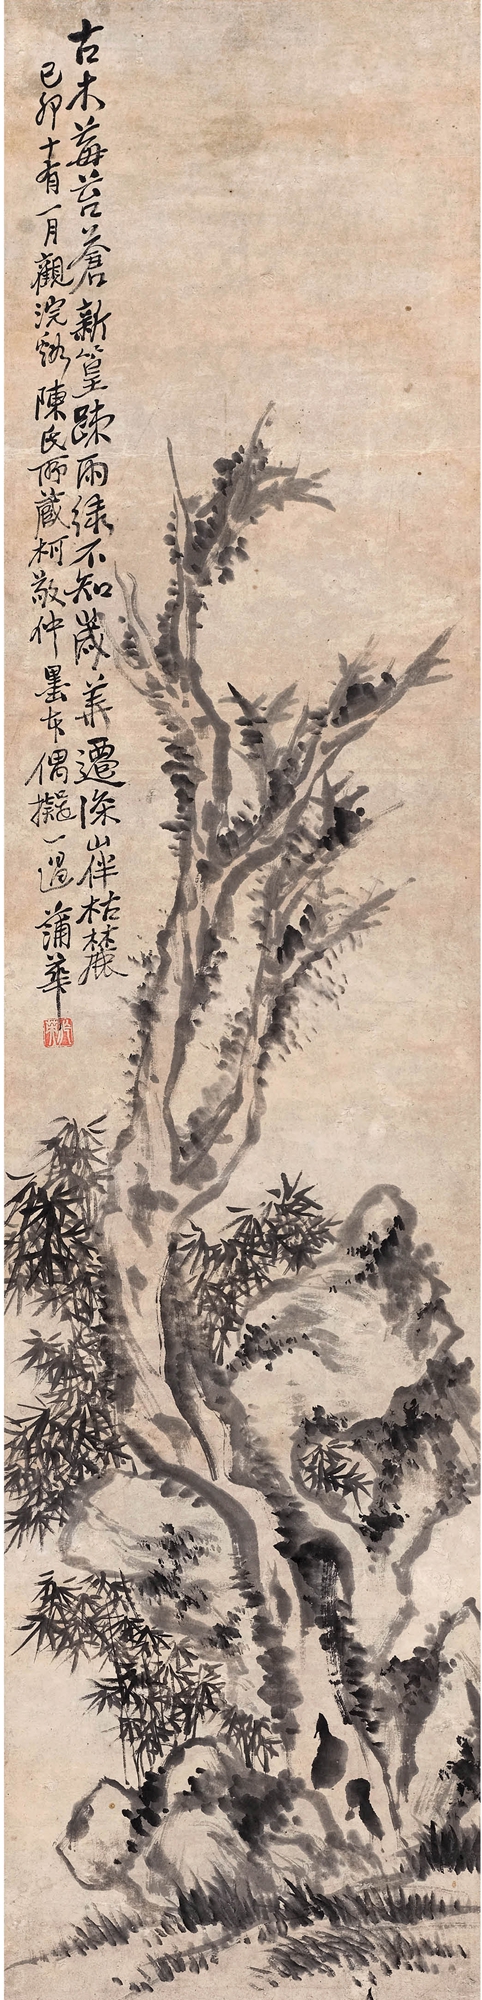 古木莓苔蒼新篁疎雨綠不知歲華遷深山伴枯麓
己卯十有一月觀浣谿陳氏所藏柯敬仲墨本偶擬一過蒲華